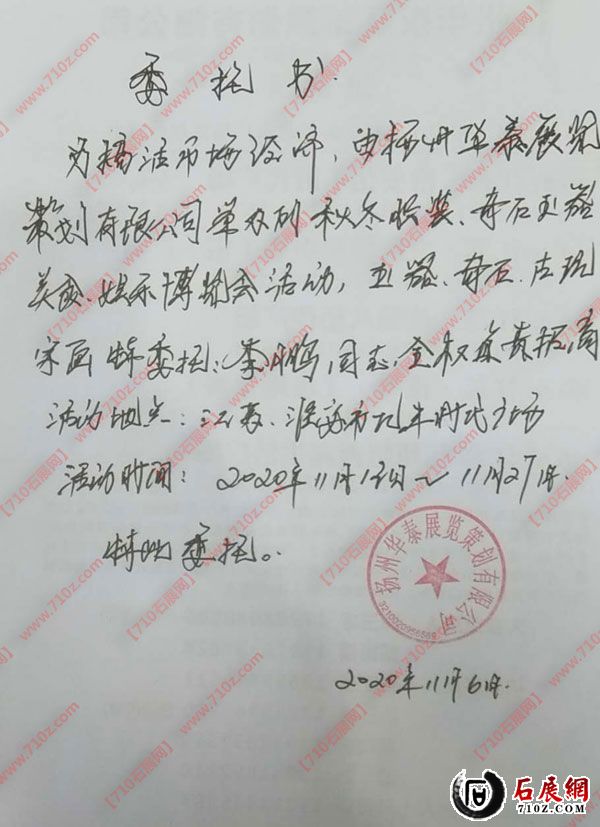 委托书.
为搞活市场经济，由扬州华泰展览
策划有限公司举办的秋冬服装、奇石玉器
美食、娱乐博览会活动，玉器、奇石、古玩
字画特委托：李鹏，同志，全权负责招商
活动地点：江苏、淮安市九华时代广场
活动时间：2020年11月13日~11月27日.
特此委托。
扬州华泰展览策划有限公司
2020年11月6日.
【710石展网】 www.710z.com
石展網
710Z.COM